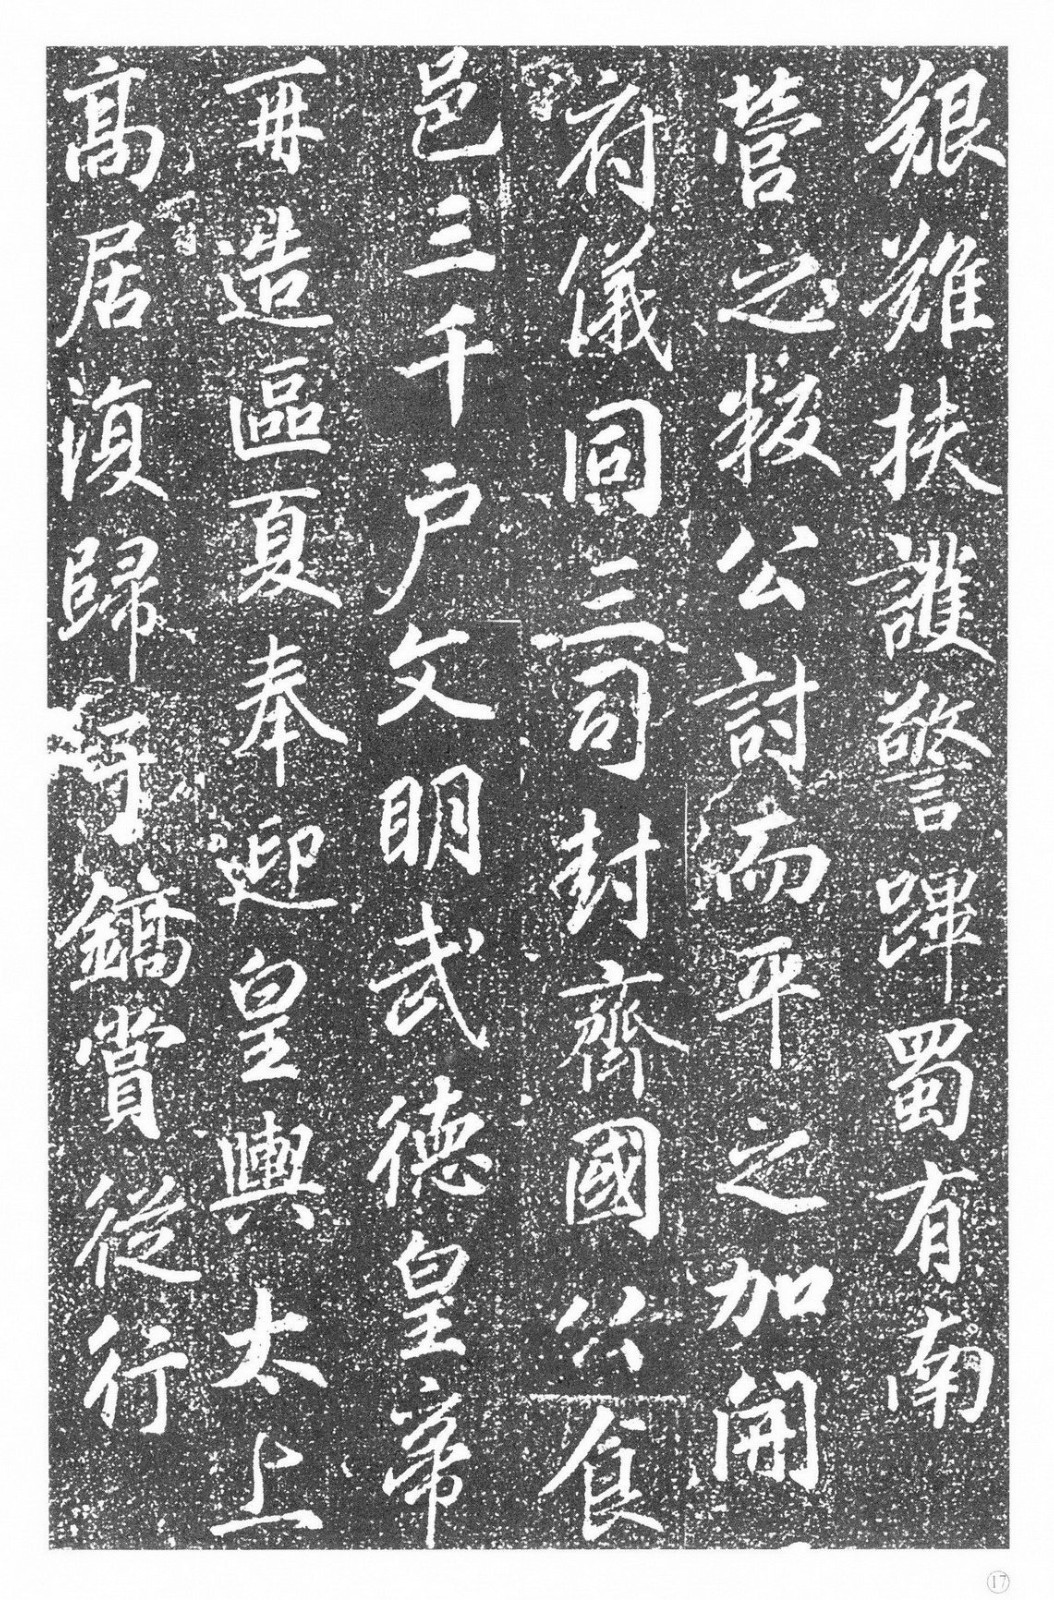 艱難扶護警蹕蜀有南
營之叛公討而平之加開
府儀同三司封齊國公食
邑三千戶文明武德皇帝
再造區夏奉迎皇輿太上
高居復歸于鎬賞從行
17